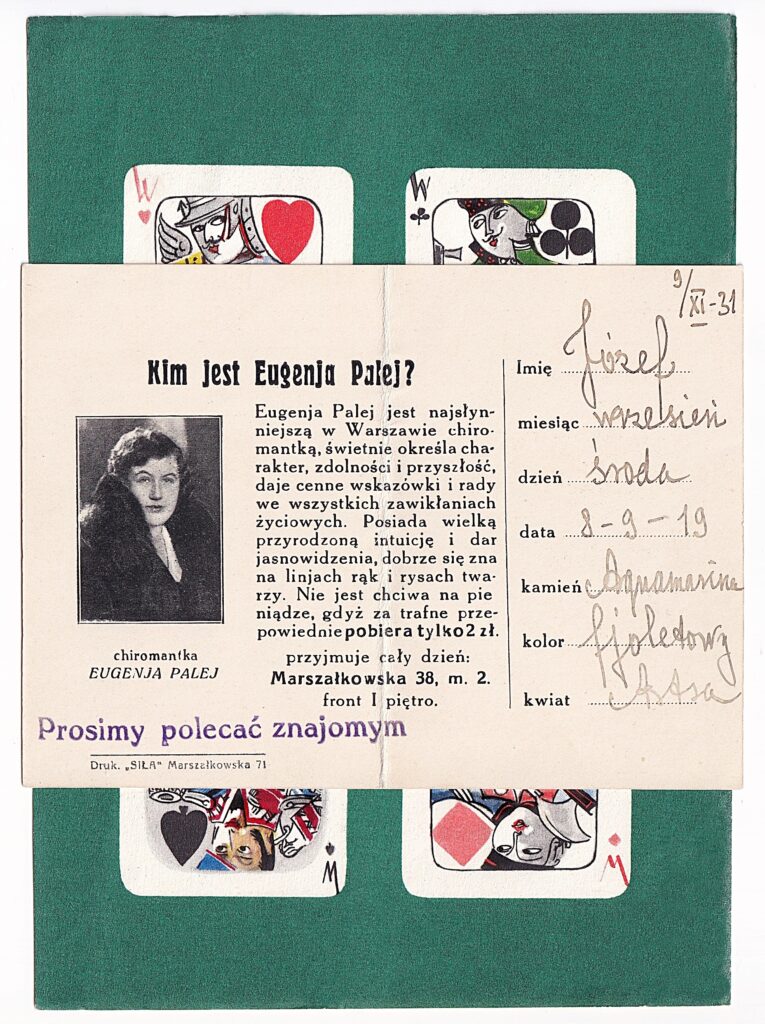 W
W
9/XI-31
Kim jest Eugenja Palej?
Eugenja Palej jest najsłyn-
niejszą w Warszawie chiro-
mantką, świetnie określa cha-
rakter, zdolności i przyszłość,
daje cenne wskazówki i rady
we wszystkich zawikłaniach
życiowych. Posiada wielką
przyrodzoną intuicję i dar
jasnowidzenia, dobrze się zna
na linjach rąk i rysach twa-
rzy. Nie jest chciwa na pie
niądze, gdyż za trafne prze-
powiednie pobiera tylko 2 zł.
przyjmuje cały dzień:
Marszałkowska 38, m. 2.
front I piętro.
chiromantka
EUGENJA PALEJ
Prosimy polecać znajomym
Druk. „SIŁA" Marszałkowska 71
Imię Józef
miesiąc wrzesień
dzień środa
data 8-9-19
kamień Aquamarina
kolor fjoletowy
kwiat Astra
W
W